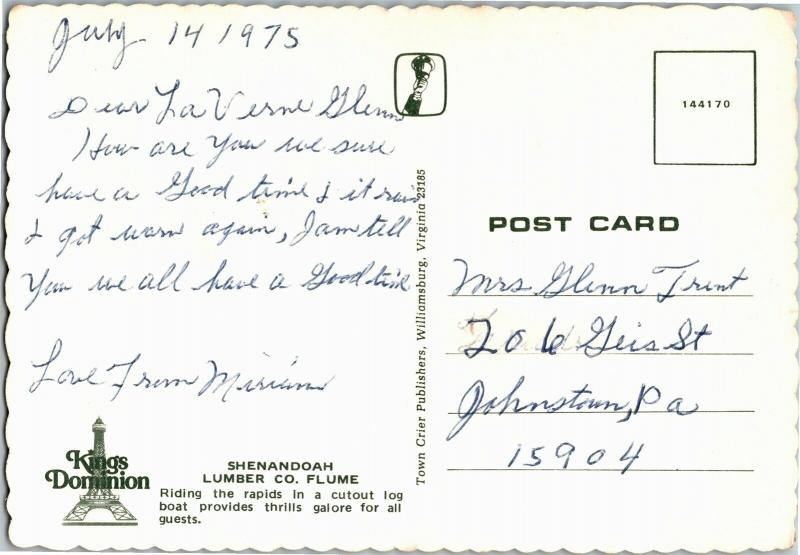 July 14 1975
Dear La Verne Glenn
How are you we sure
have a Good time & it rain
& got warm again, I am tell
You we all have a Good time
Love From Miriam
Kings
Dominion
SHENANDOAH
LUMBER CO. FLUME
Riding the rapids in a cutout log
boat provides thrills galore for all
guests.
Town Crier Publishers, Williamsburg, Virginia 23185
144170
POST CARD
Mrs Glenn Trent
206 Geis St
Johnstown, Pa
15904